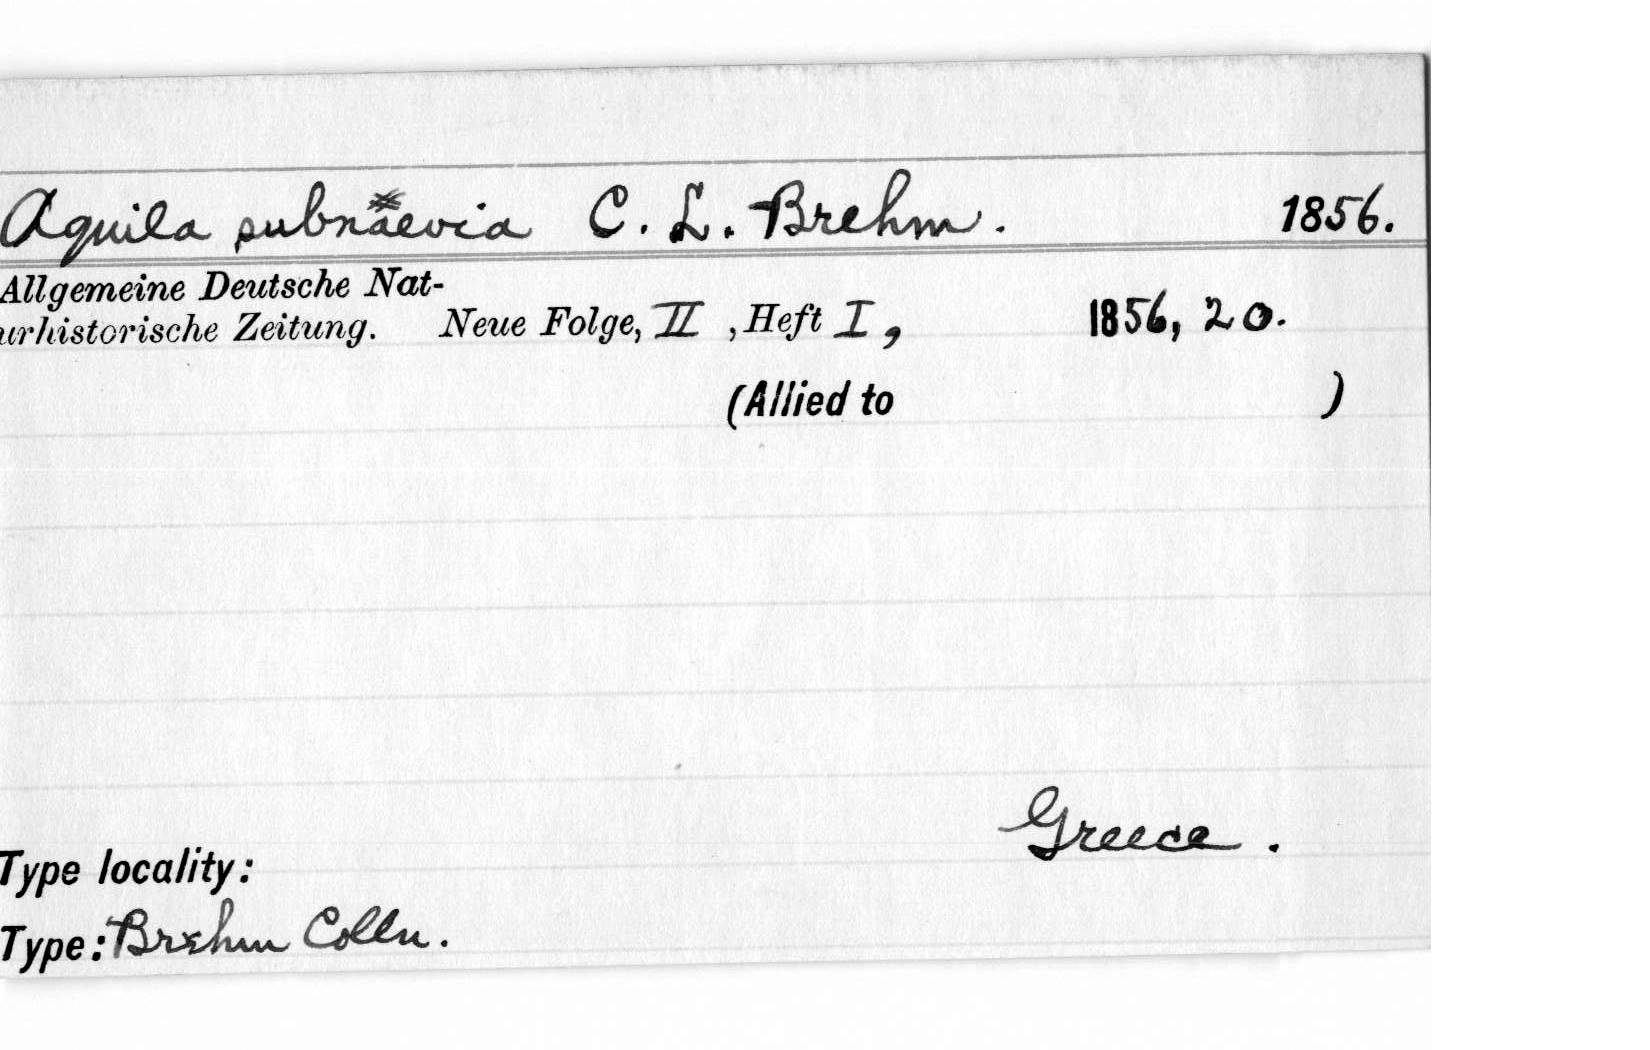 Aquila subnaevia C. L. Brehm. 1856.
Allgemeine Deutsche Nat-
urhistorische Zeitung. Neue Folge, II , Heft I, 1856, 20.
(Allied to )
Greece.
Type locality:
Type: Brehm Colln.